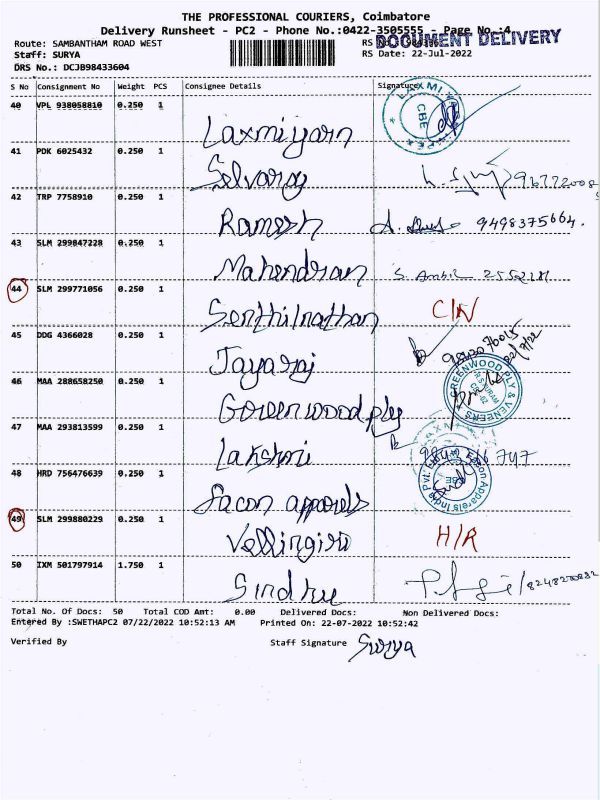 THE PROFESSIONAL COURIERS, Coimbatore
Delivery Runsheet - PC2 - Phone No.:0422-3505555 - Page No.:4
Route: SAMBANTHAM ROAD WEST RS
DOCUMENT DELIVERY
Staff: SURYA RS Date: 22-Jul-2022
DRS No.: DCJB98433604
S No Consignment No Weight PCS Consignee Details Signature
40 VPL 938058810 0.250 1 Laxmiyarn LAXMI CBE
41 PDK 6025432 0.250 1 Selvaraj
42 TRP 7758910 0.250 1 Ramesh 9498375664.
43 SLM 299847228 0.250 1 Mahendran S. Ambi
44 SLM 299771056 0.250 1 Senthilnathan C/N
45 DDG 4366028 0.250 1 Jayaraj
46 MAA 288658250 0.250 1 Goreenwood ply GREENWOOD PLY & VENEERS
47 MAA 293813599 0.250 1 Lakshmi
48 HRD 756476639 0.250 1 Facon apparels Facon Apparels India Pvt.
49 SLM 299880229 0.250 1 Vellingiri H/R
50 IXM 501797914 1.750 1 Sindhu
Total No. Of Docs: 50 Total COD Amt: 0.00 Delivered Docs: Non Delivered Docs:
Entered By :SWETHAPC2 07/22/2022 10:52:13 AM Printed On: 22-07-2022 10:52:42
Verified By Staff Signature Surya